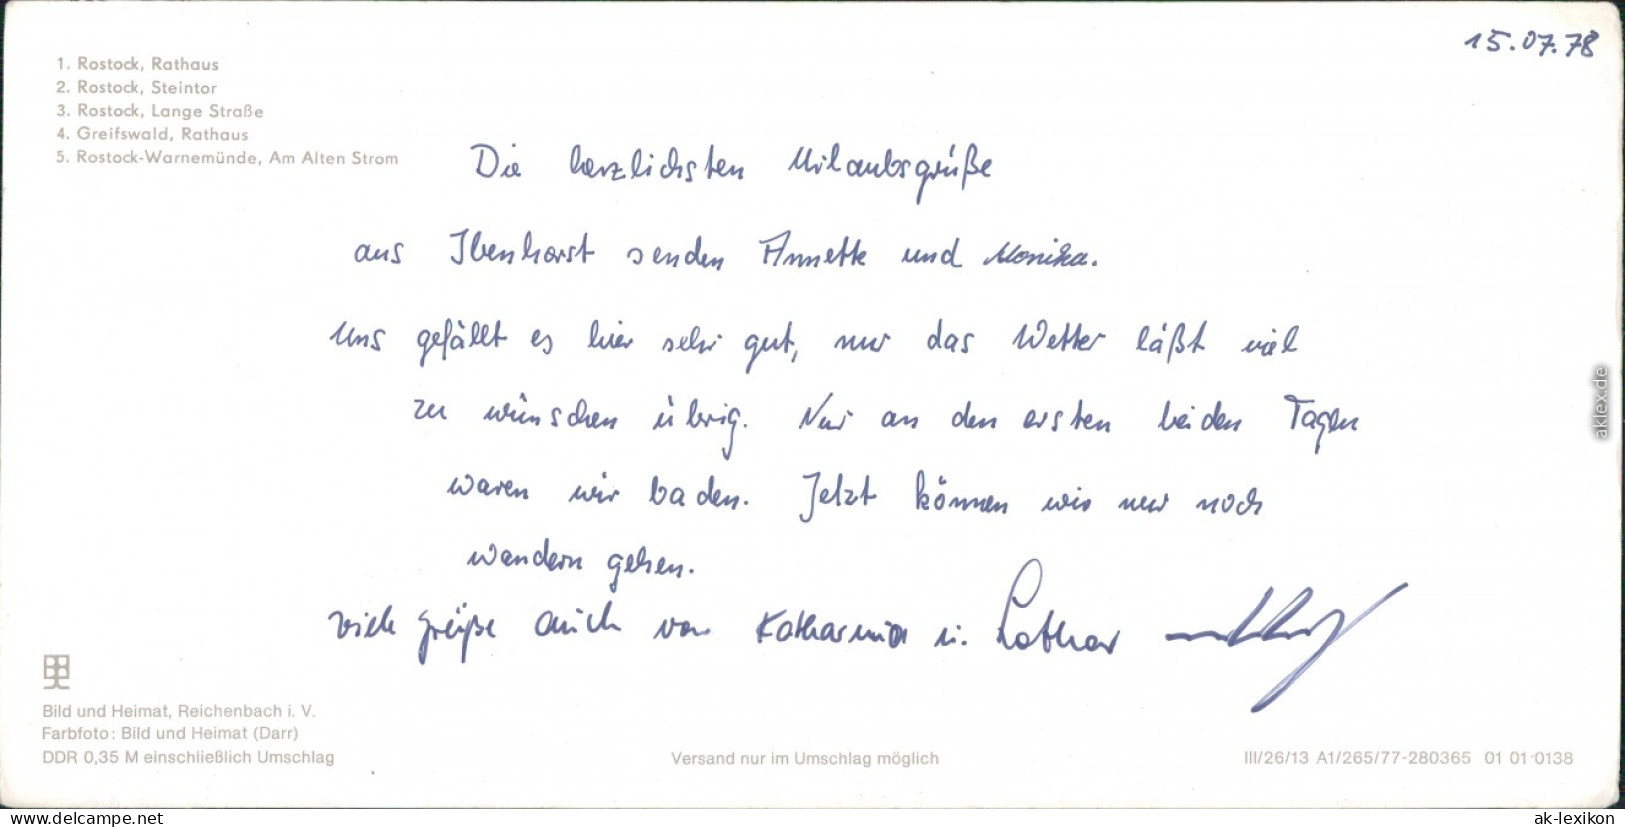 15.07.78
1. Rostock, Rathaus
2. Rostock, Steintor
3. Rostock, Lange Straße
4. Greifswald, Rathaus
5. Rostock-Warnemünde, Am Alten Strom
Die herzlichsten Urlaubsgrüße
aus Ibenhorst senden Annette und Monika.
Uns gefällt es hier sehr gut, nur das Wetter läßt viel
zu wünschen übrig. Nur an den ersten beiden Tagen
waren wir baden. Jetzt können wir nur noch
wandern gehen.
Viele Grüße auch von Katharina u. Lothar
Bild und Heimat, Reichenbach i. V.
Farbfoto: Bild und Heimat (Darr)
DDR 0,35 M einschließlich Umschlag
Versand nur im Umschlag möglich
III/26/13 A1/265/77-280365 01 01-0138
aklex.de
www.delcampe.net
ak-lexikon